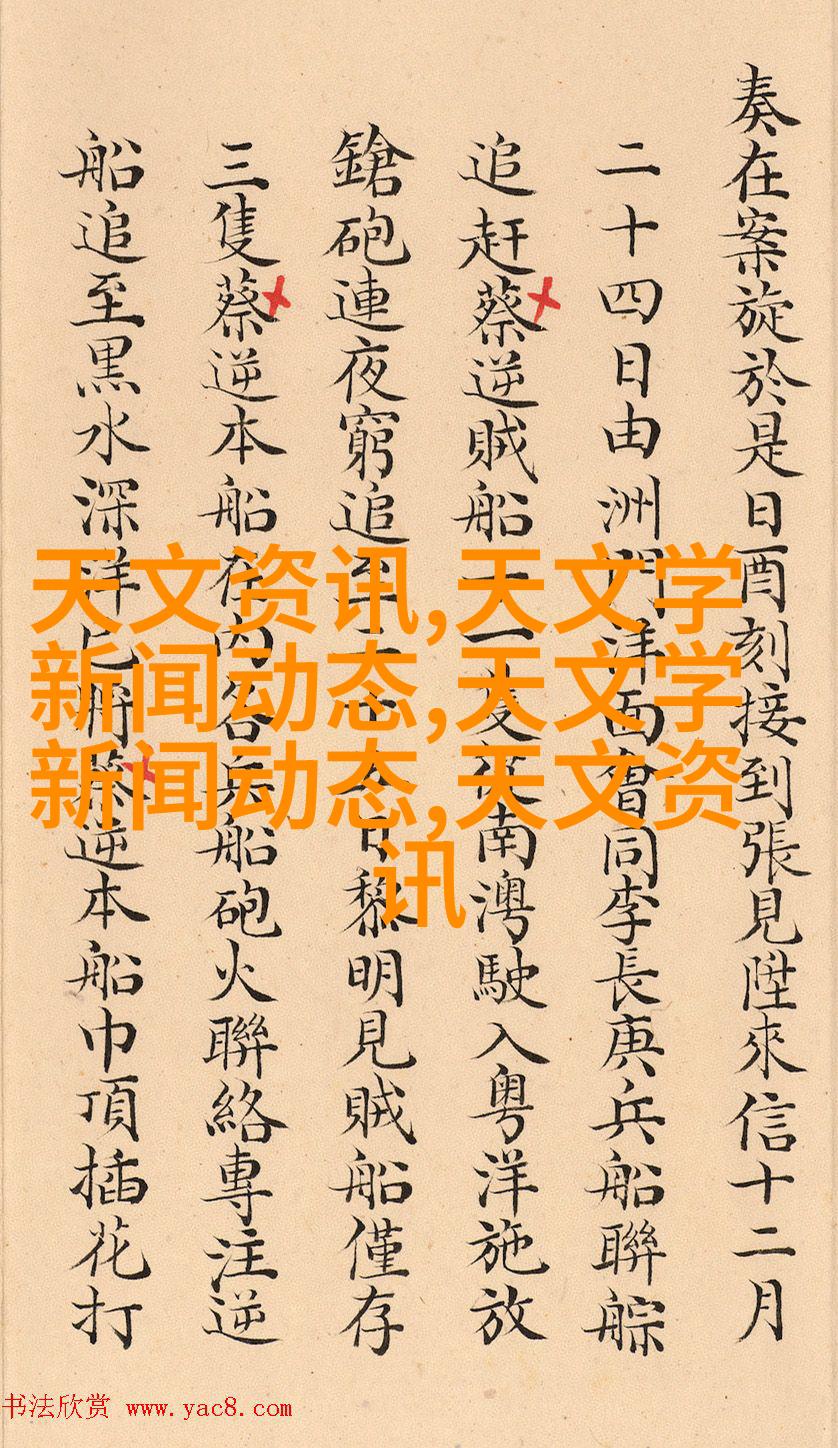 奏在案旋於是日酉刻接到張見陞來信十二月
二十四日由洲門洋面會同李長庚兵船聯䑸
追赶蔡逆賊船十一隻從南澳駛入粤洋施放
鎗砲連夜窮追至二十八日黎明見賊船僅存
三隻蔡逆本船在内各兵船砲火聯絡專注逆
船追至黒水深洋已將蔡逆本船巾頂插花打
天文资讯,天文学
新闻动态,天文学
新闻动态,天文资
讯
书法欣赏 www.yac8.com